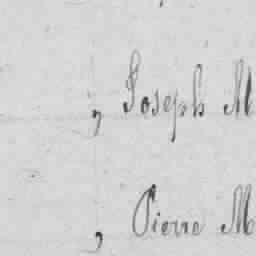 , Joseph M
, Pierre M